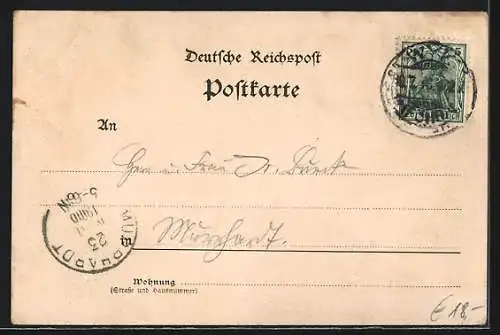 Deutsche Reichspost
Postkarte
An
Herrn u. Frau Dr. Dürck
in
Murrhardt.
Wohnung
(Straße und Hausnummer)
MURRHARDT
23
1900
5-6 N
€ 18,-